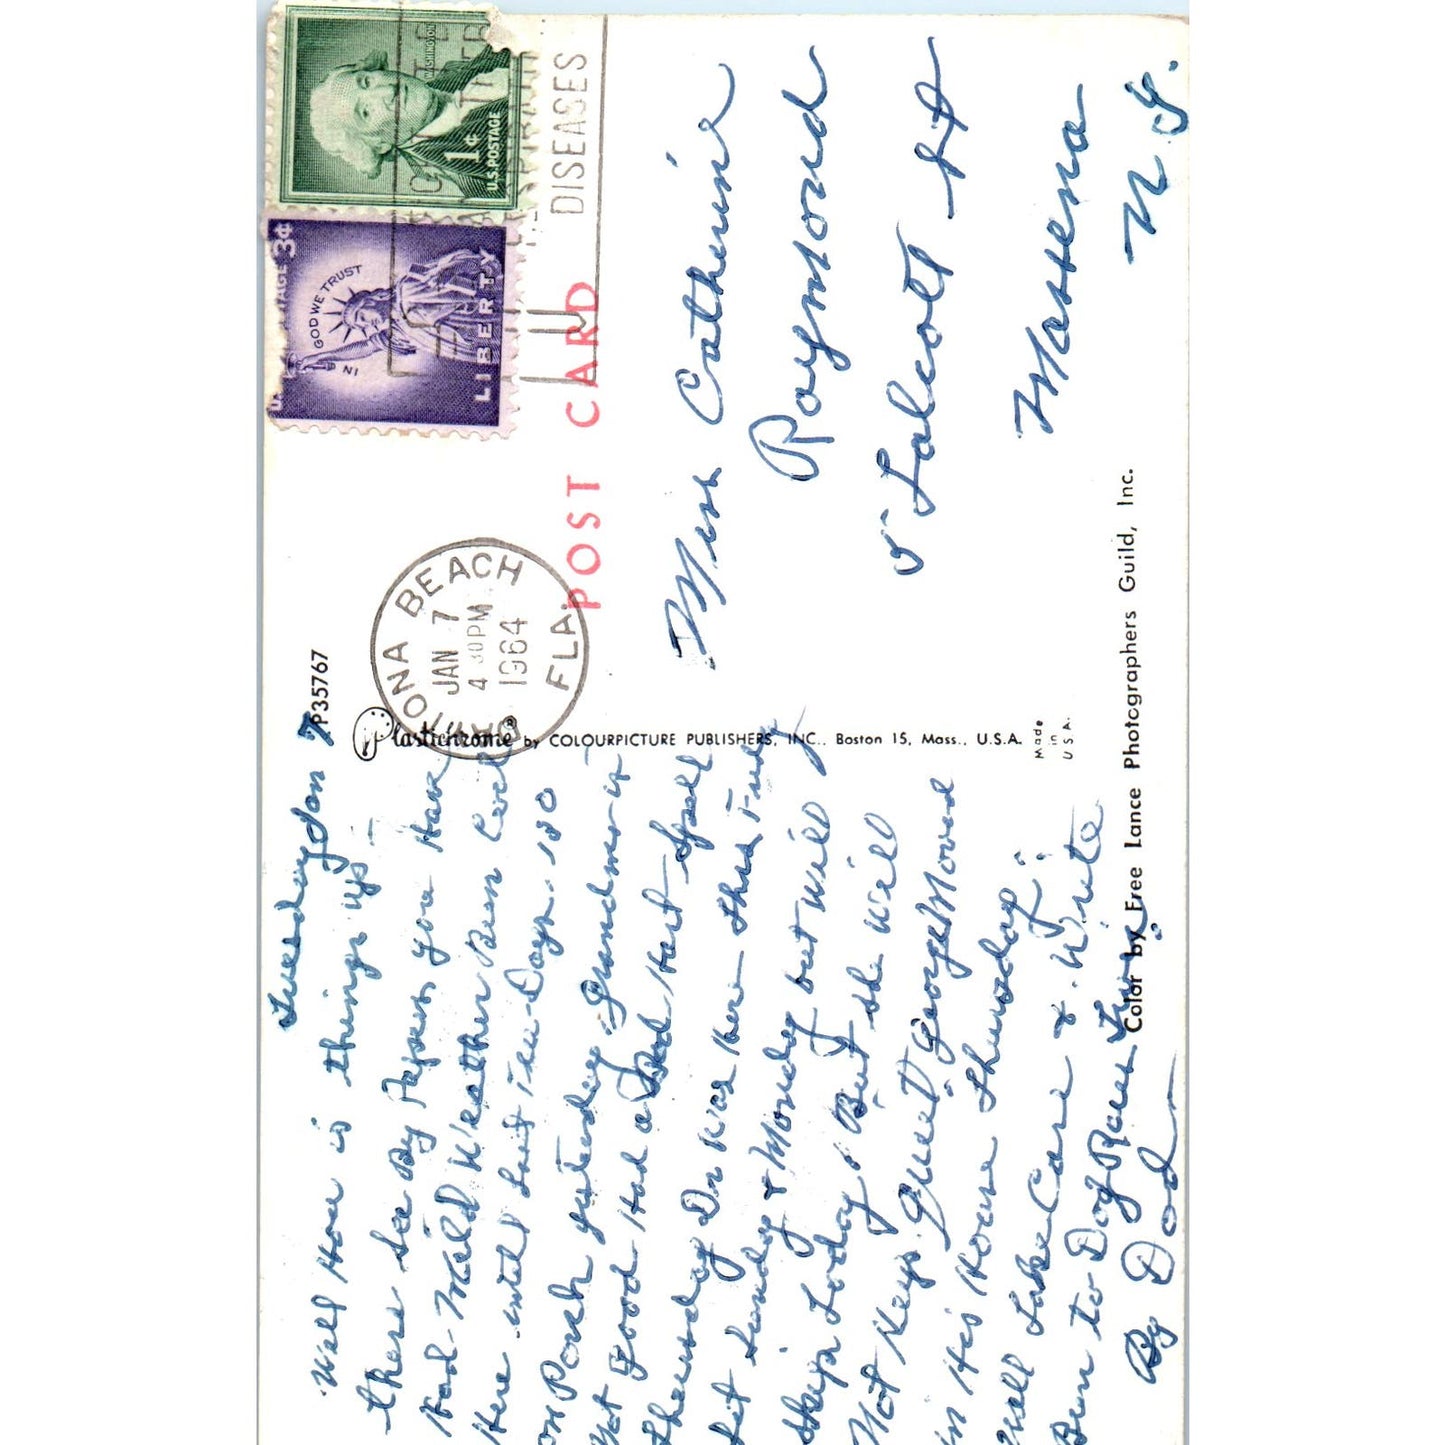 Tuesday Jan 7
Well How is things up
there See By Papers you Have
Had Mild Weather Been Cool
Here until Last Few Days. 80
on Porch yesterday Grandma is
Not Good Had a Bad Hart Spell
Thursday Dr was Here Thur Friday
Sat Sunday & Monday but will
Skip Today, But she will
Not Keep Quiet George Moved
in His House Thursday
Well Take Care & Write
Been to Dog Races
By Dad
P35767
Plastichrome® by COLOURPICTURE PUBLISHERS, INC., Boston 15, Mass., U.S.A.
Made in U.S.A.
Color by Free Lance Photographers Guild, Inc.
POST CARD
DAYTONA BEACH
JAN 7
4 30 PM
1964
FLA.
RESPIRATORY
DISEASES
U.S. POSTAGE 3¢
IN GOD WE TRUST
LIBERTY
WASHINGTON
1¢
U.S. POSTAGE
Miss Catherine
Raymond
5 Talcott St
Massena
N.Y.